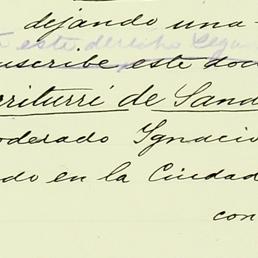 dejando una-
este derecho lega
uscribe este doc
criturri de Sand
oderado Ignacio
do en la Ciudad
con